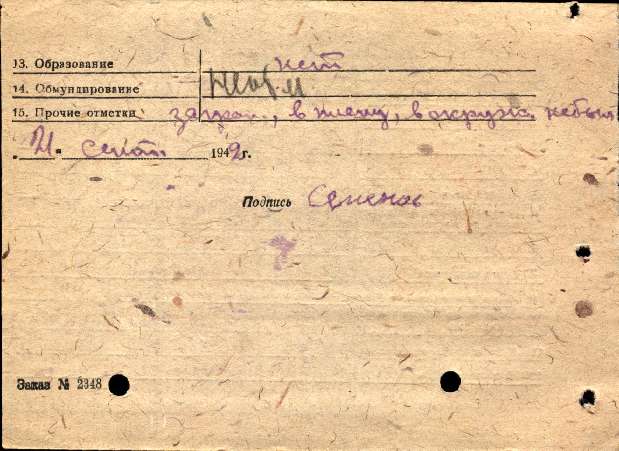 13. Образование нет
14. Обмундирование
15. Прочие отметки загран., в плену, в окруж. не был
„21“ сент. 1942 г.
Подпись Семенов
Заказ № 2348